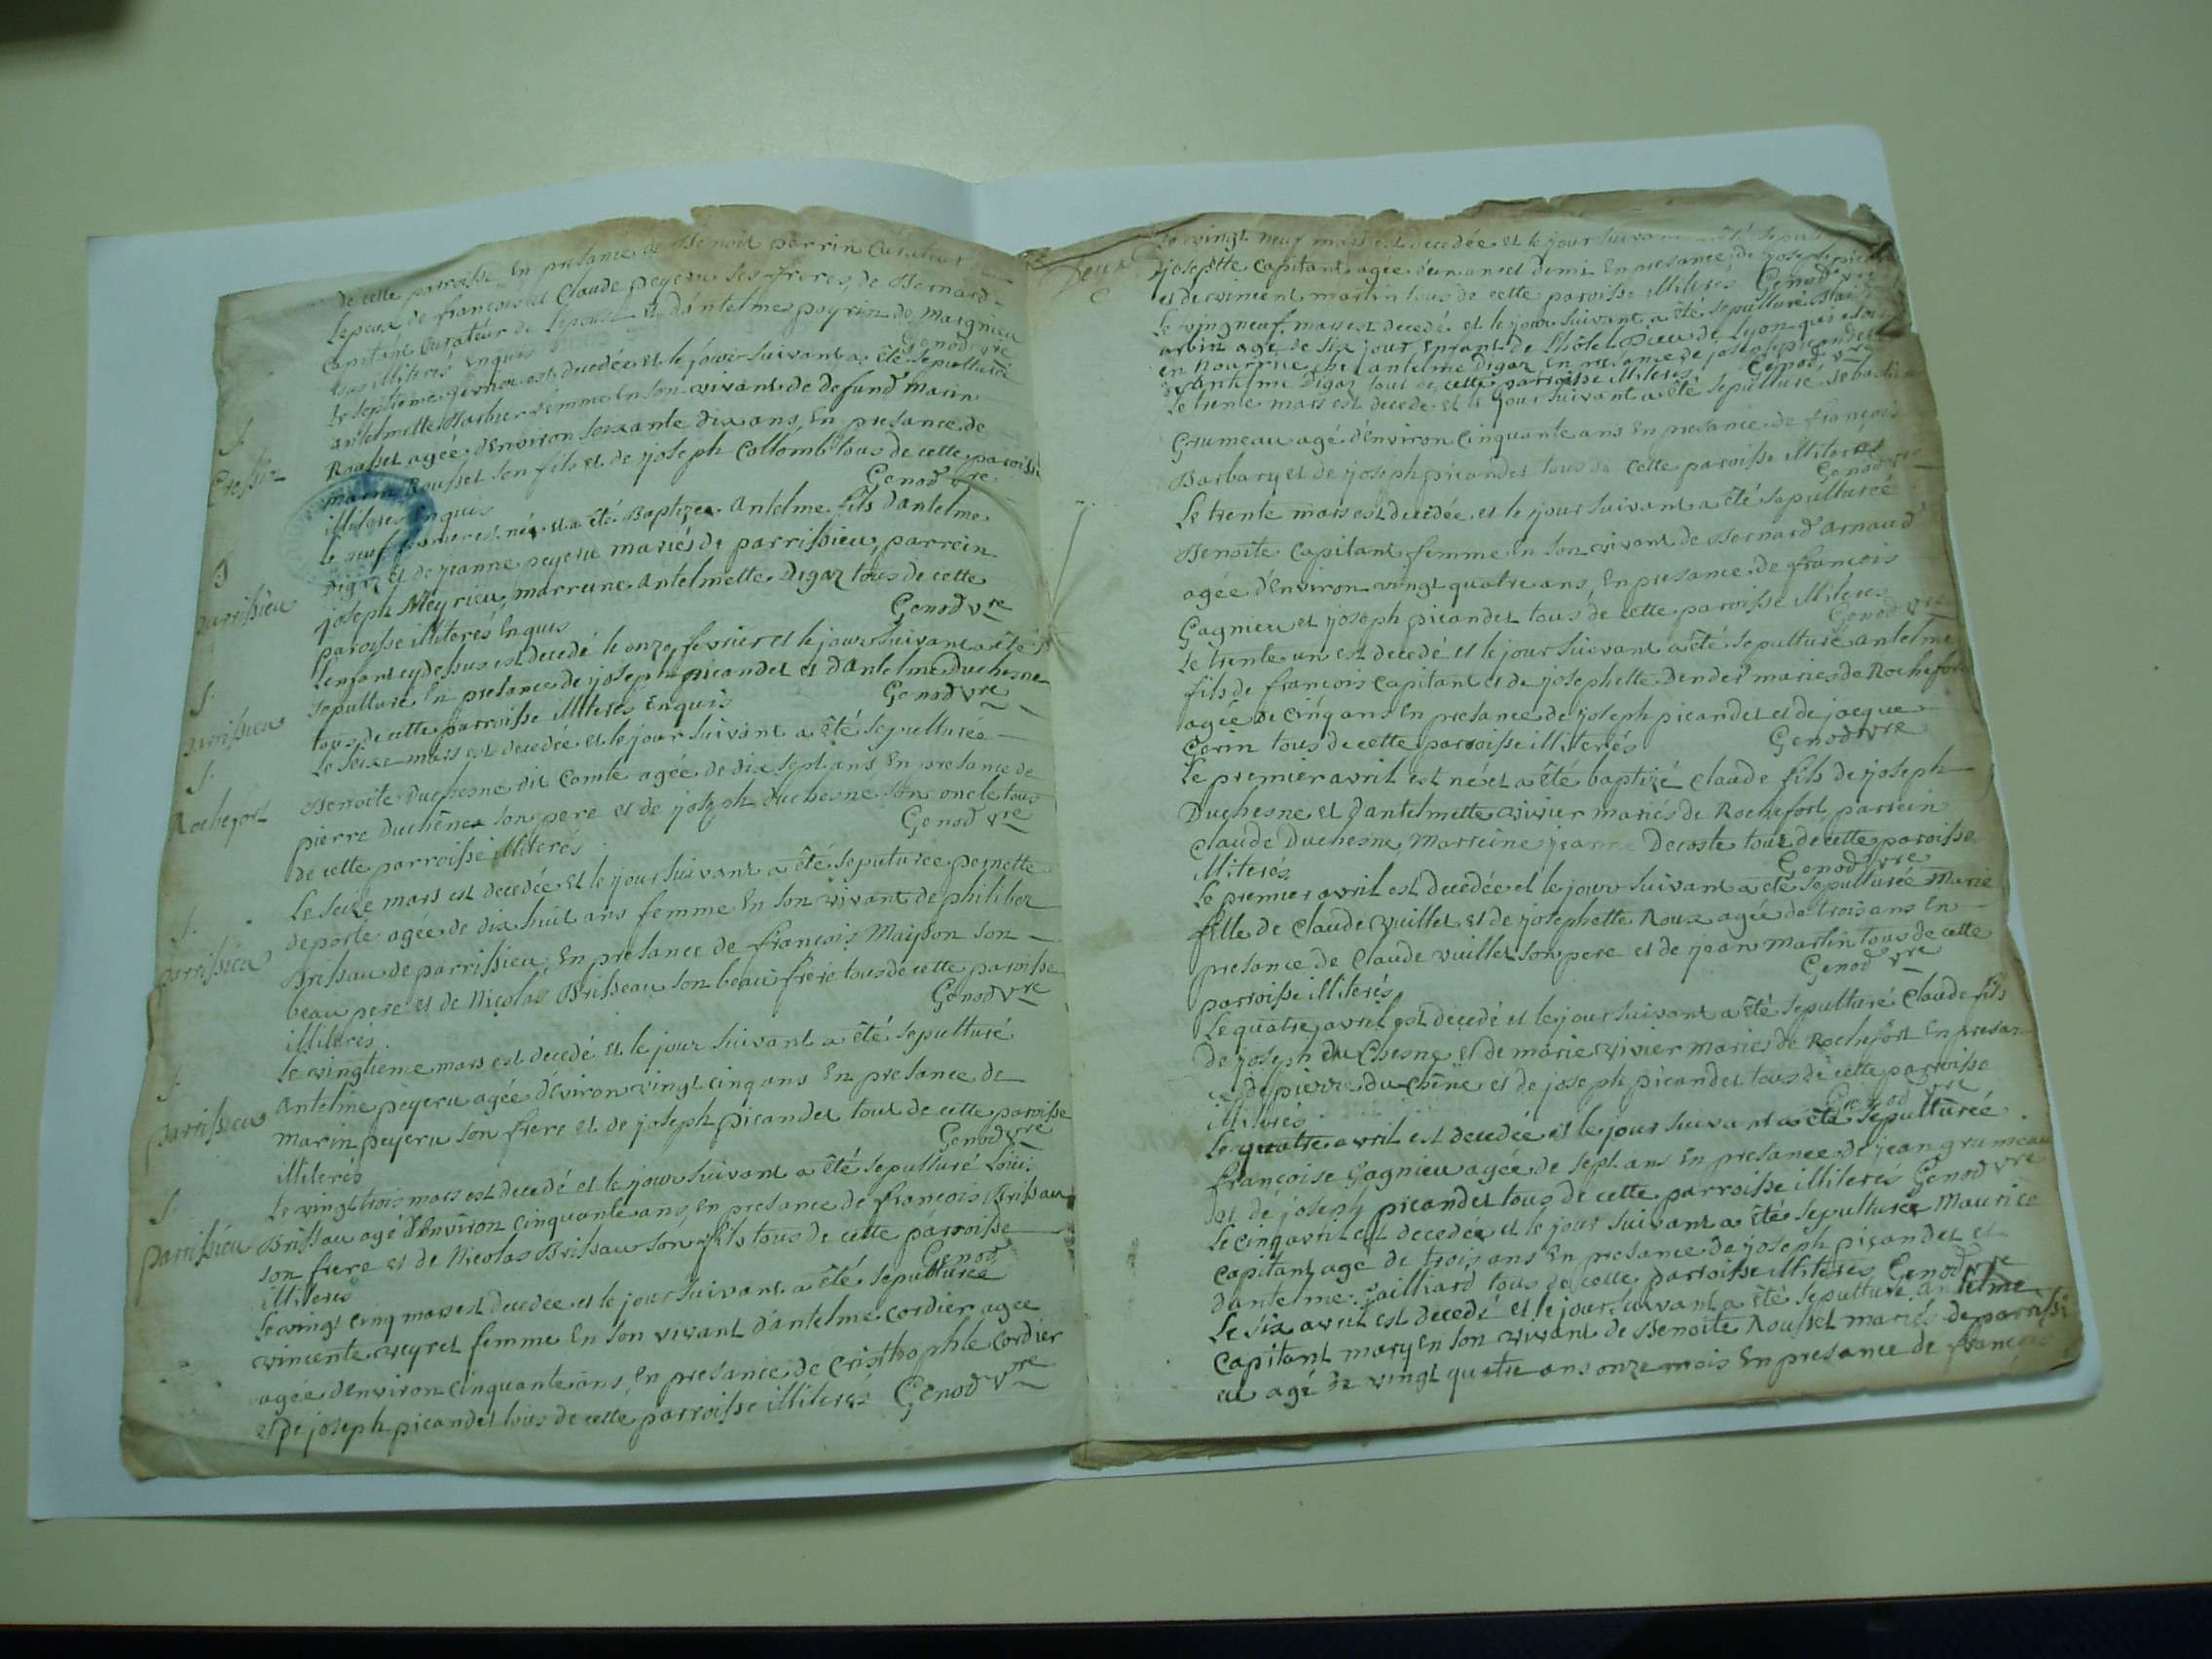 de cette paroisse En presance de Benoit perrin Curateur
Lepeux de francois et Claude peyeru ses freres, de Bernard
Capitant Curateur de Lepouse et dantelme peyrin de Magnieu
tous illiterés Enquis Genod vre
Le septieme fevrier est decedée et le jour suivant a été sepulturée
antelmette Barbier femme En son vivant de defund Marin
Rousset agée d'Environ soixante dix ans, En presance de
marin Rousset son fils et de joseph Collomb tous de cette paroisse
illiteres Enquis Genod vre
S.
Cressin
Le neuf fevrier est né et a été Baptizee Antelme fils dantelme
Digaz et de jeanne peyeru mariés de parrissieu, parrein
joseph Meyrieu, marreine Antelmette Digaz tous de cette
paroisse illiterés Enquis Genod vre
parrissieu
L'enfant cy dessus est decedé le onze fevrier et le jour suivant a été
sepulturé En presance de joseph picandet et d'Antelme Duchesne
tous de cette parroisse illiteres Enquis Genod vre
S.
parrissieu
Le seize mars est decedée et le jour suivant a été sepulturée
Benoite Duchesne dit Comte agée de dix sept ans En presance de
pierre Duchêne son pere et de joseph duchesne son oncle tous
de cette parroisse illiterés Genod vre
S.
Rochefort
Le seize mars est decedée et le jour suivant a été sepulturée pernette
deporte agée de dix huit ans femme En son vivant de philiber
Brissau de parrissieu, En presance de francois Maipson son
beau pere et de Nicolas Brisseau son beau frere tous de cette paroisse
illiterés. Genod vre
S.
parrissieu
Le vingtieme mars est decedé et le jour suivant a été sepulturé
Antelme peyeru agée d'Eviron vingt cinq ans En presance de
Marin peyeru son frere et de joseph picandet tout de cette paroisse
illiterés Genod vre
S.
parrissieu
Le vingt trois mars est decedé et le jour suivant a été sepulturé Louis
Brissau agé d'Environ cinquante ans, En presance de francois Brissau
son frere et de Nicolas Brissau son fils tous de cette paroisse
illiterés Genod
S.
parrissieu
Le vingt cinq mars est decedée et le jour suivant a été sepulturée
vincente veyret femme En son vivant d'antelme Cordier agee
agée d'Environ cinquante ans, En presance de Cristhophle Cordier
et de joseph picandet tous de cette parroisse illiterés Genod vre
Deux
Le vingt neuf mars est decedée et le jour suivant a été sepul
josephte Capitant agée d'un an et demi En presance de joseph pica
et de vincent martin tous de cette paroisse illiterés Genod vre
Le vingneuf mars est decedé et le jour suivant a été sepulturé
arbin age de six jour Enfant de L'hôtel Dieu de Lyon qui etoit
en Nourrice che antelme Digaz En presance de joseph picandet
et antelme Digaz tout de cette parroisse illiteres. Genod vre
Le trente mars est decede et le jour suivant a été sepulturé sebastien
Grumeau agé d'Environ Cinquante ans En presance de francois
Barbary et de joseph picandet tous de cette paroisse illiteres
Genod vre
Le trente mars est decedée et le jour suivant a été sepulturée
Benoite Capitant femme En son vivant de Bernard arnaud
agée d'Environ vingt quatre ans, En presance de francois
Gagnieu et joseph picandet tous de cette paroisse illiteres
Genod vre
Le trente un est decedé et le jour suivant a été sepulturé antelme
fils de francois Capitant et de josephette Dender mariés de Rochefort
agée de cinq ans En presance de joseph picandet et de jacque
Cerin tous de cette paroisse illiterés Genod vre
Le premier avril est né et a été baptizé Claude fils de joseph
Duchesne et dantelmette vivier mariés de Rochefort, parrein
Claude Duchesne, Marreine jeanne Decoste tout de cette paroisse
illiterés Genod vre
Le premier avril est decedée et le jour suivant a été sepulturée Marie
fille de Claude vuillet et de josephette Roux agée de trois ans En
presance de Claude vuillet son pere et de jean Martin tous de cette
parroisse illiterés Genod vre
Le quatre avril est decedé et le jour suivant a été sepulturé Claude fils
de joseph du Chesne et de marie vivier mariés de Rochefort En presan
ce de pierre du Chêne et de joseph picandet tous de cette parroisse
illiterés Genod vre
Le quatre avril est decedée et le jour suivant a été sepulturée
francoise Gagnieu agée de sept ans En presance de jean grumeau
et de joseph picandet tous de cette parroisse illiterés Genod vre
Le cinq avril est decedée et le jour suivant a été sepulturée Maurice
Capitant age de trois ans En presance de joseph picandet et
dantelme jailliard tous de cette parroisse illiteres Genod vre
Le six avril est decedé et le jour suivant a été sepulturé. antelme
Capitant mary En son vivant de Benoite Rousset mariés de parrissi
eu agé de vingt quatre ans onze mois En presance de francois